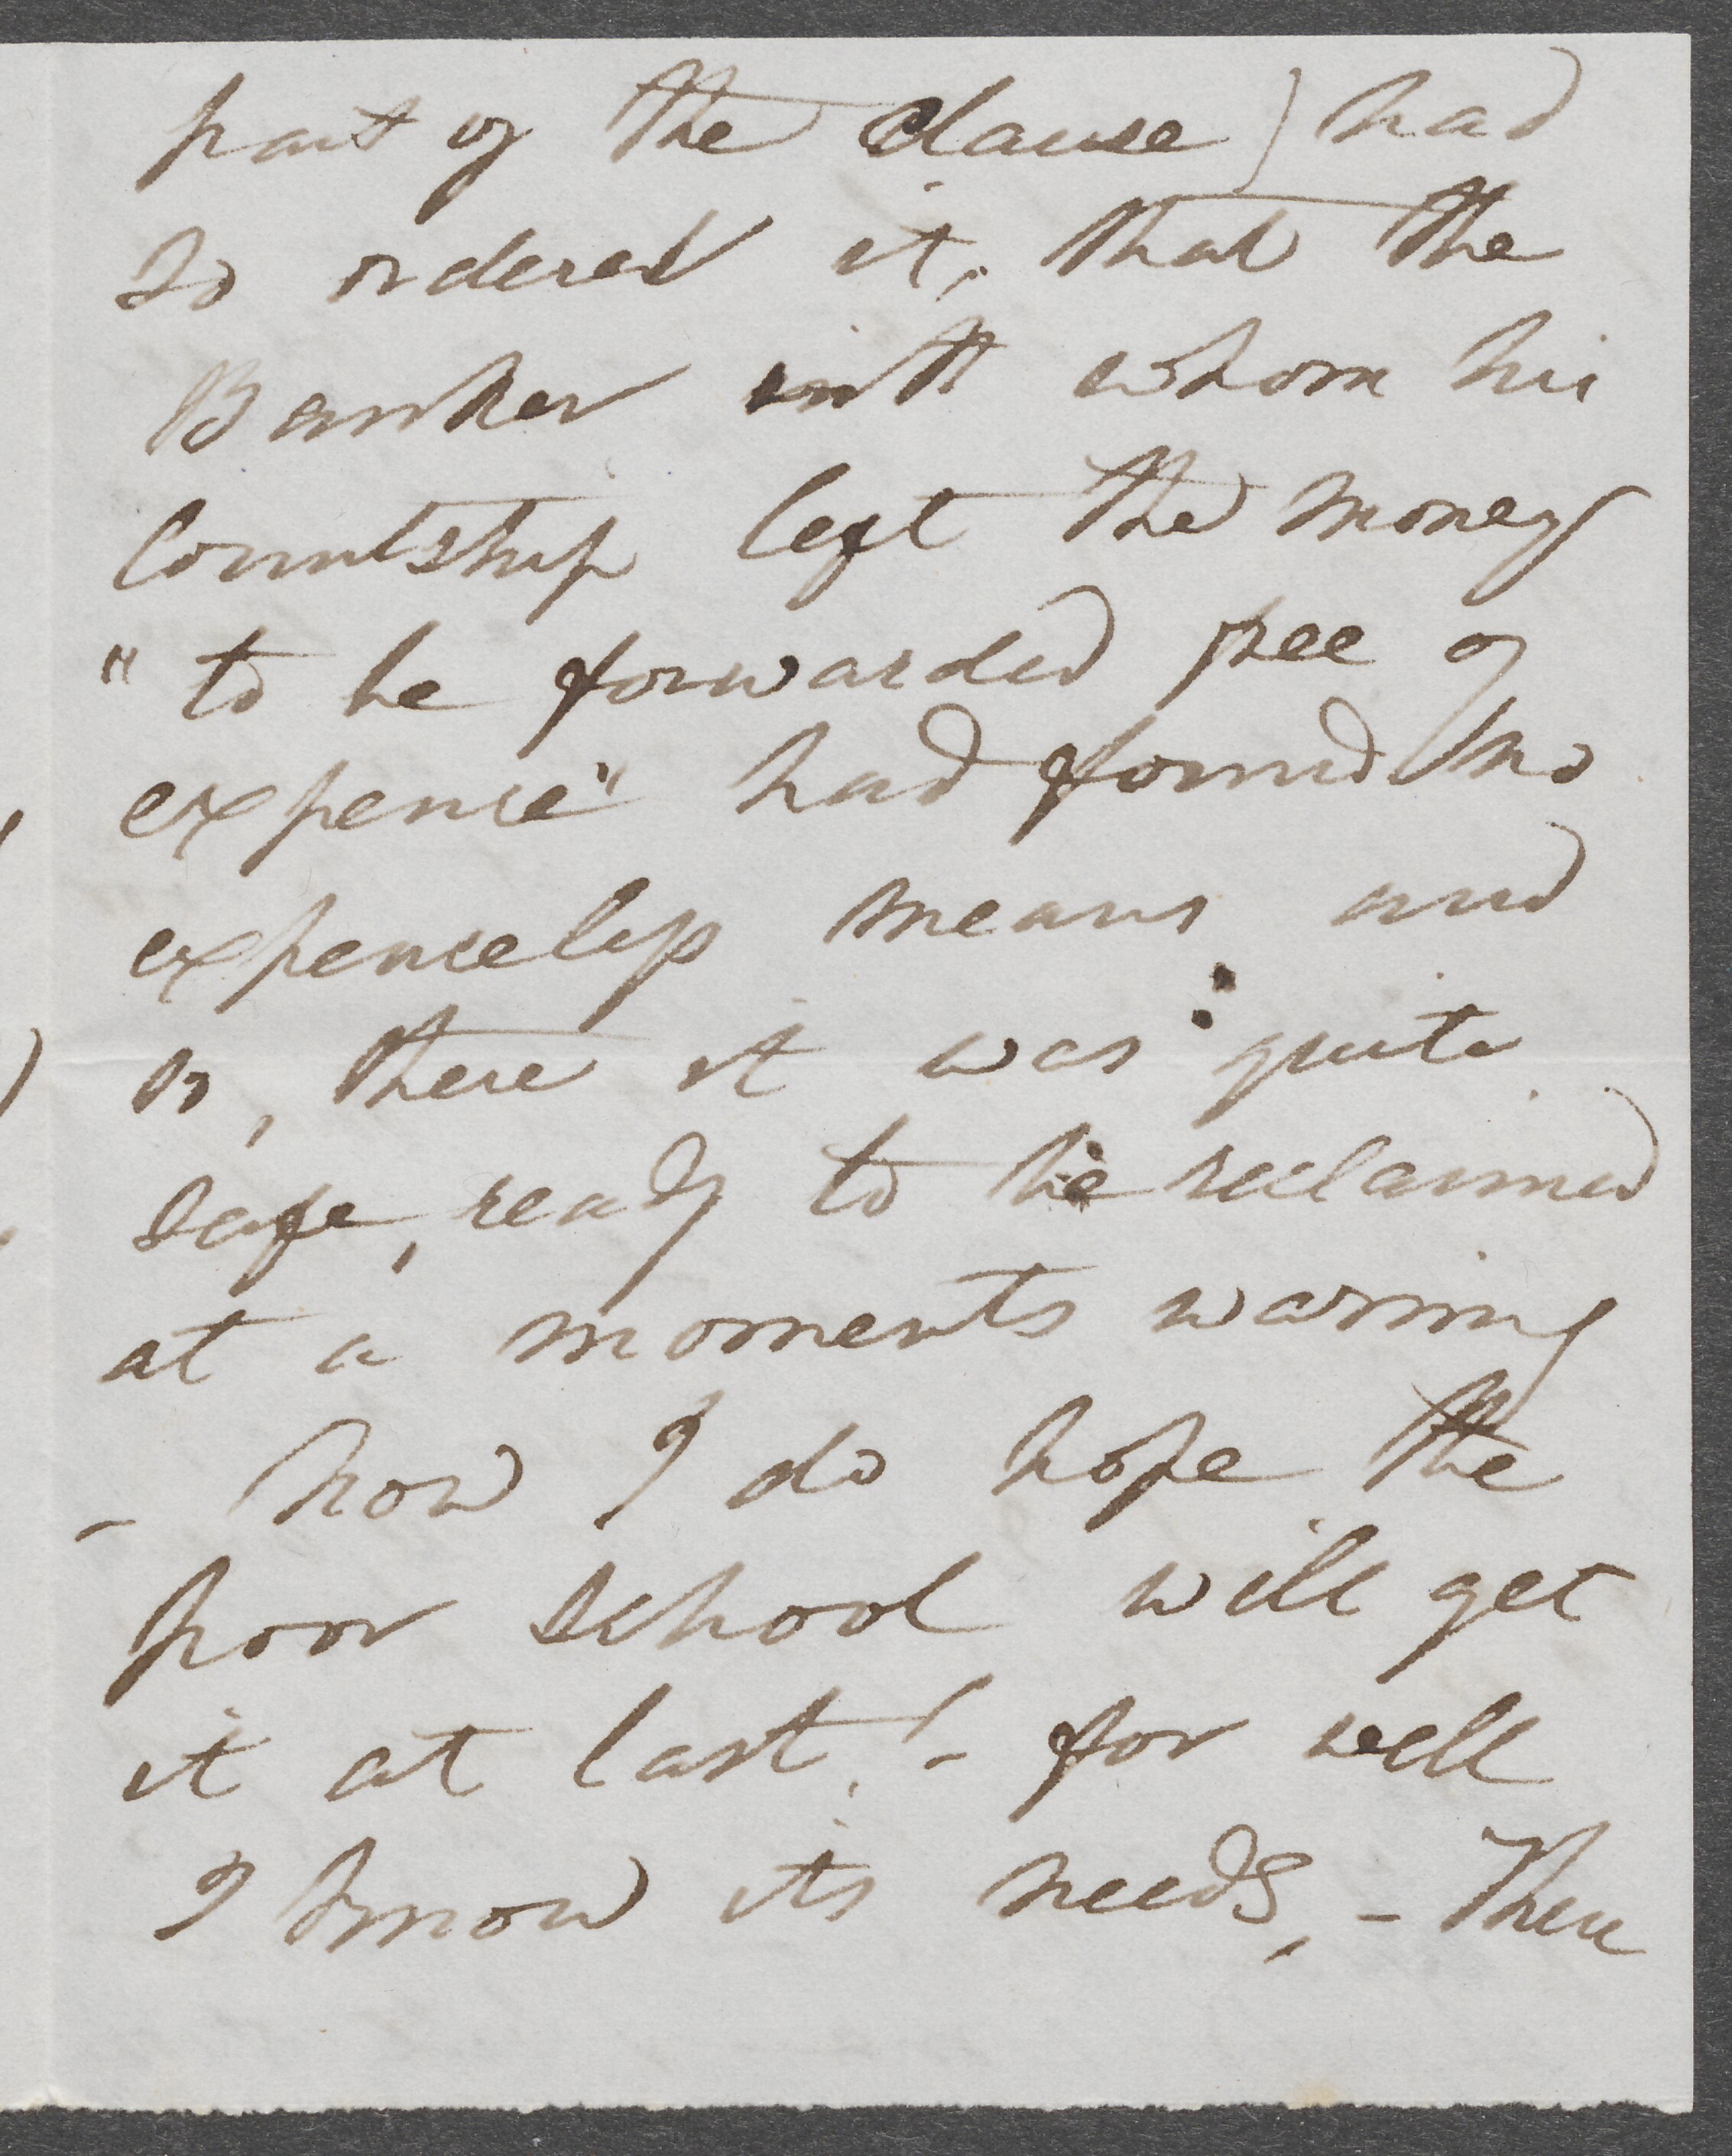 part of the clause) had
so ordered it, that the
Banker with whom his
Countship left the money
"to be forwarded free of
expense" had found no
expenseless means and
so, there it was quite
safe, ready to be reclaimed
at a moments warning
- how I do hope the
poor school will get
it at last! - for well
I know its needs, - There